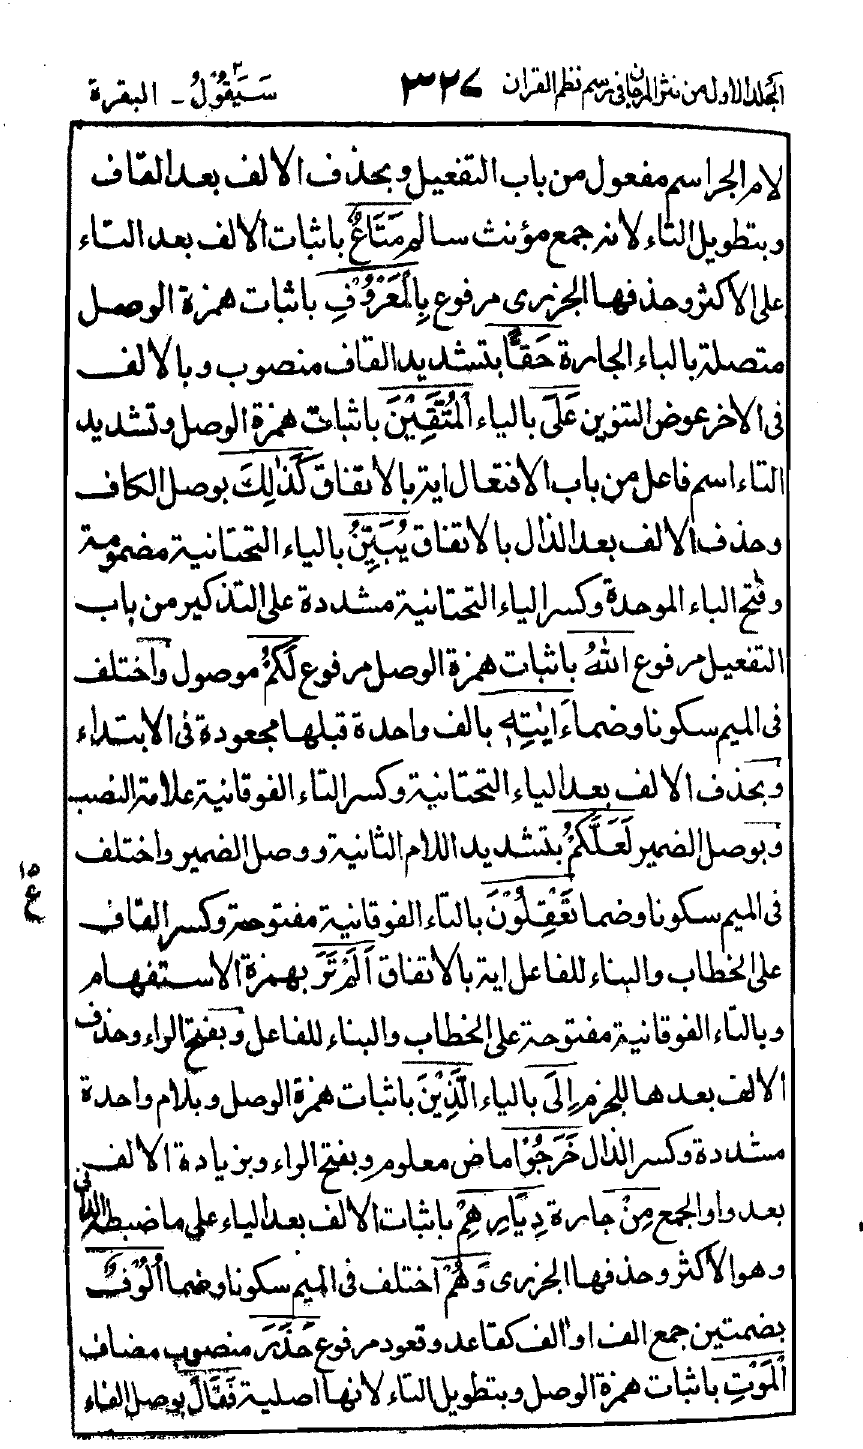 المجلد الاول من نثر المرجان فى رسم نظم القران ٣٢٧ سَيَقُوْلُ ٢ - البقرة
لام الجر اسم مفعول من باب التفعيل و بحذف الالف بعد القاف
وبتطويل التاء لانه جمع مؤنث سالم مَتَاعٌ باثبات الالف بعد التاء
على الاكثر وحذفها الجزرى مرفوع بِالْمَعْرُوْفِ باثبات همزة الوصل
متصلة بالباء الجارة حَقًّا بتشديد القاف منصوب وبالالف
فى الاخر عوض التنوين عَلَى بالياء الْمُتَّقِيْنَ باثبات همزة الوصل وتشديد
التاء اسم فاعل من باب الافتعال اية بالاتفاق كَذٰلِكَ بوصل الكاف
وحذف الالف بعد الذال بالاتفاق يُبَيِّنُ بالياء التحتانية مضمومة
وفتح الباء الموحدة وكسر الياء التحتانية مشددة على التذكير من باب
التفعيل مرفوع اللهُ باثبات همزة الوصل مرفوع لَكُمْ موصول واختلف
فى الميم سكونا وضما اٰيٰتِهٖ بالف واحدة قبلها مجعودة فى الابتداء
وبحذف الالف بعد الياء التحتانية وكسر التاء الفوقانية علامة النصب
وبوصل الضمير لَعَلَّكُمْ بتشديد اللام الثانية ووصل الضمير واختلف
فى الميم سكونا وضما تَعْقِلُوْنَ بالتاء الفوقانية مفتوحة وكسر القاف
على الخطاب والبناء للفاعل اية بالاتفاق اَلَمْ تَرَ بهمزة الاستفهام
وبالتاء الفوقانية مفتوحة على الخطاب والبناء للفاعل وبفتح الراء وحذف
الالف بعدها للجزم اِلَى بالياء الَّذِيْنَ باثبات همزة الوصل وبلام واحدة
مشددة وكسر الذال خَرَجُوْا ماض معلوم وبفتح الراء وبزيادة الالف
بعد واو الجمع مِنْ جارة دِيَارِهِمْ باثبات الالف بعد الياء على ما ضبطه الدانى
وهو الاكثر وحذفها الجزرى وَهُمْ اختلف فى الميم سكونا وضما اُلُوْفٌ
بضمتين جمع الف او الف كقاعد وقعود مرفوع حَذَرَ منصوب مضاف
الْمَوْتِ باثبات همزة الوصل وبتطويل التاء لانها اصلية فَقَالَ بوصل الفاء
١٥
ع